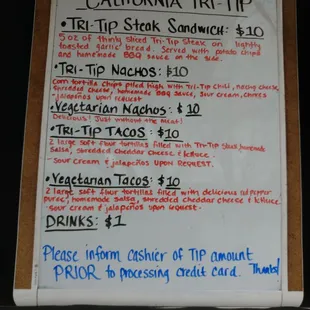 CALIFORNIA TRI-TIP
• TRI-TIP STEAK SANDWICH: $10
5 oz of thinly sliced Tri-Tip Steak on lightly
toasted garlic bread. Served with potato chips
and homemade BBQ sauce on the side.
• TRI-TIP NACHOS: $10
Corn tortilla chips piled high with Tri-Tip chili, nacho cheese,
shredded cheese, homemade BBQ sauce, sour cream,
jalapeños upon request
• Vegetarian NACHOS: $10
Delicious! Just without the meat!
• TRI-TIP TACOS: $10
2 large soft flour tortillas filled with Tri-Tip, homemade
salsa, shredded cheddar cheese & lettuce.
- SOUR CREAM & jalapeños UPON REQUEST.
• Vegetarian TACOS: $10
2 large soft flour tortillas filled with delicious
homemade salsa, shredded cheddar cheese & lettuce.
- sour cream & jalapeños upon request.
DRINKS: $1
Please inform cashier of TIP amount
PRIOR to processing credit card. Thanks!